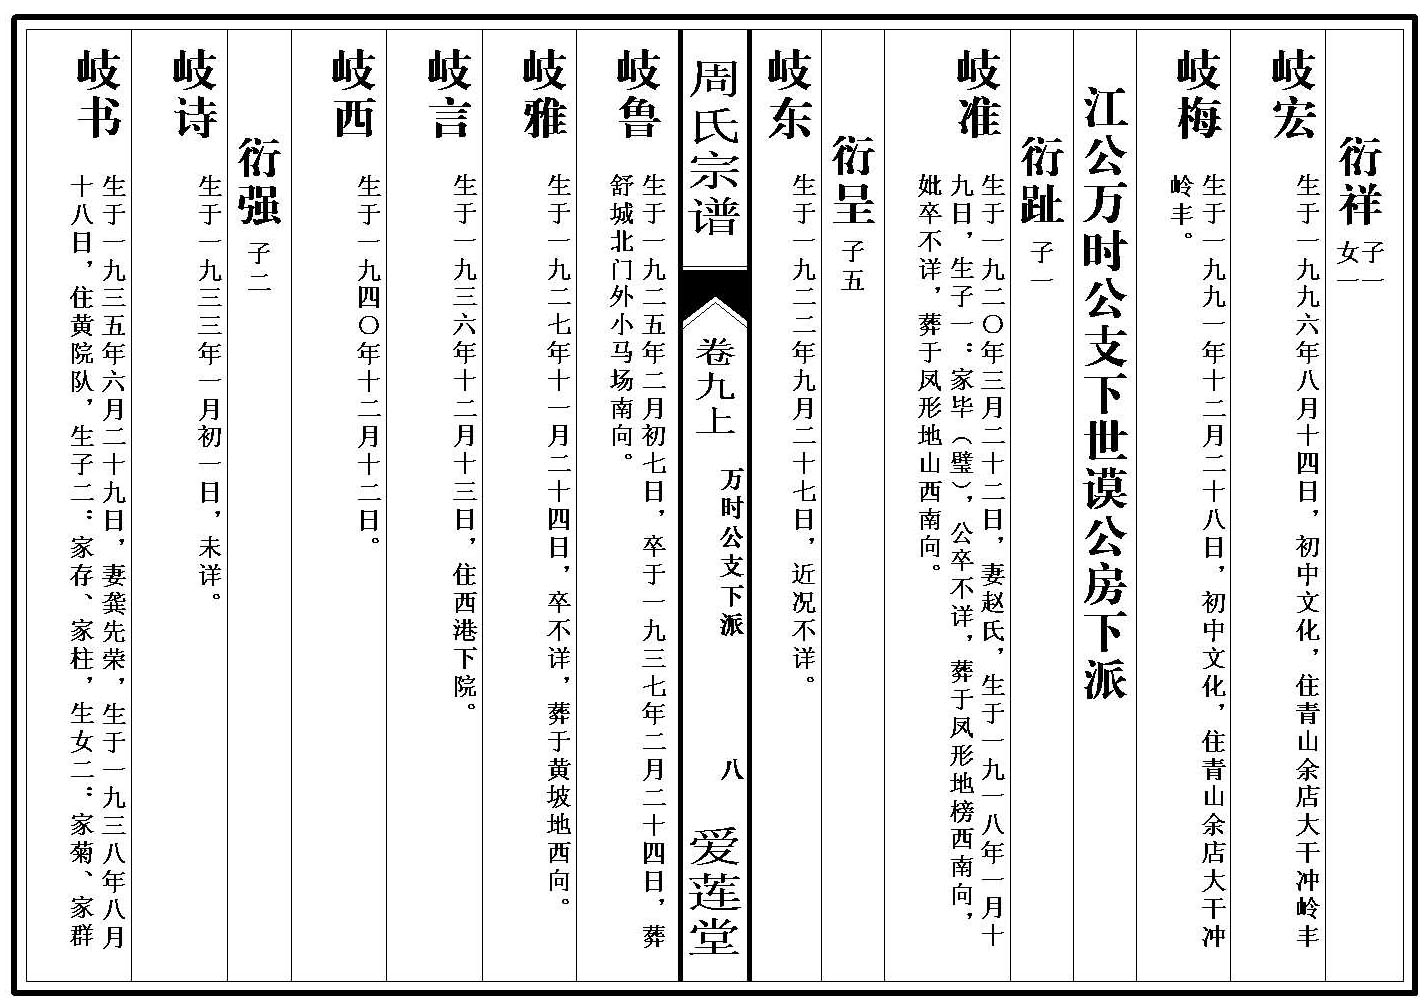 衍祥 子一
女一
岐宏 生于一九九六年八月十四日，初中文化，住青山余店大干冲岭丰
岐梅 生于一九九一年十二月二十八日，初中文化，住青山余店大干冲
岭丰。
江公万时公支下世谟公房下派
衍趾 子一
岐准 生于一九二〇年三月二十二日，妻赵氏，生于一九一八年一月十
九日，生子一：家毕（璧），公卒不详，葬于凤形地榜西南向，
妣卒不详，葬于凤形地山西南向。
衍呈 子五
岐东 生于一九二二年九月二十七日，近况不详。
周氏宗谱
卷九上
万时公支下派
八
爱莲堂
岐鲁 生于一九二五年二月初七日，卒于一九三七年二月二十四日，葬
舒城北门外小马场南向。
岐雅 生于一九二七年十一月二十四日，卒不详，葬于黄坡地西向。
岐言 生于一九三六年十二月十三日，住西港下院。
岐西 生于一九四〇年十二月十二日。
衍强 子二
岐诗 生于一九三三年一月初一日，未详。
岐书 生于一九三五年六月二十九日，妻龚先荣，生于一九三八年八月
十八日，住黄院队，生子二：家存、家柱，生女二：家菊、家群